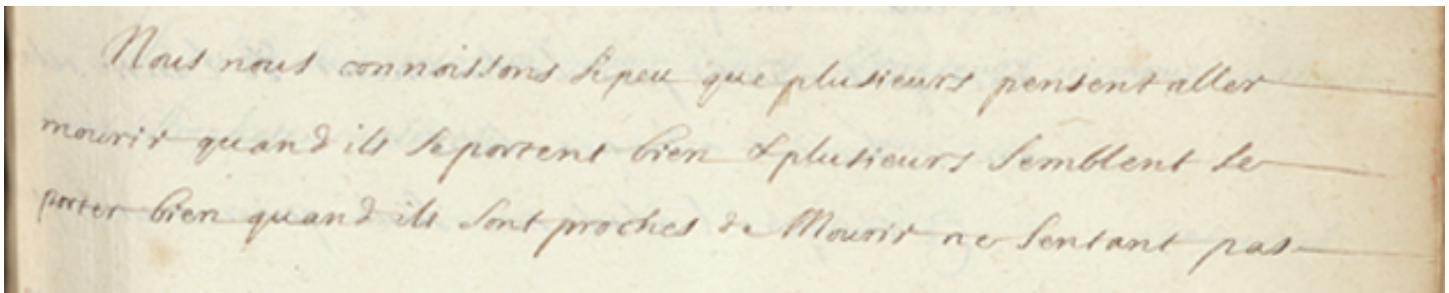 Nous nous connoissons si peu que plusieurs pensent aller
mourir quand ils se portent bien & plusieurs semblent se
porter bien quand ils sont proches de Mourir ne sentant pas